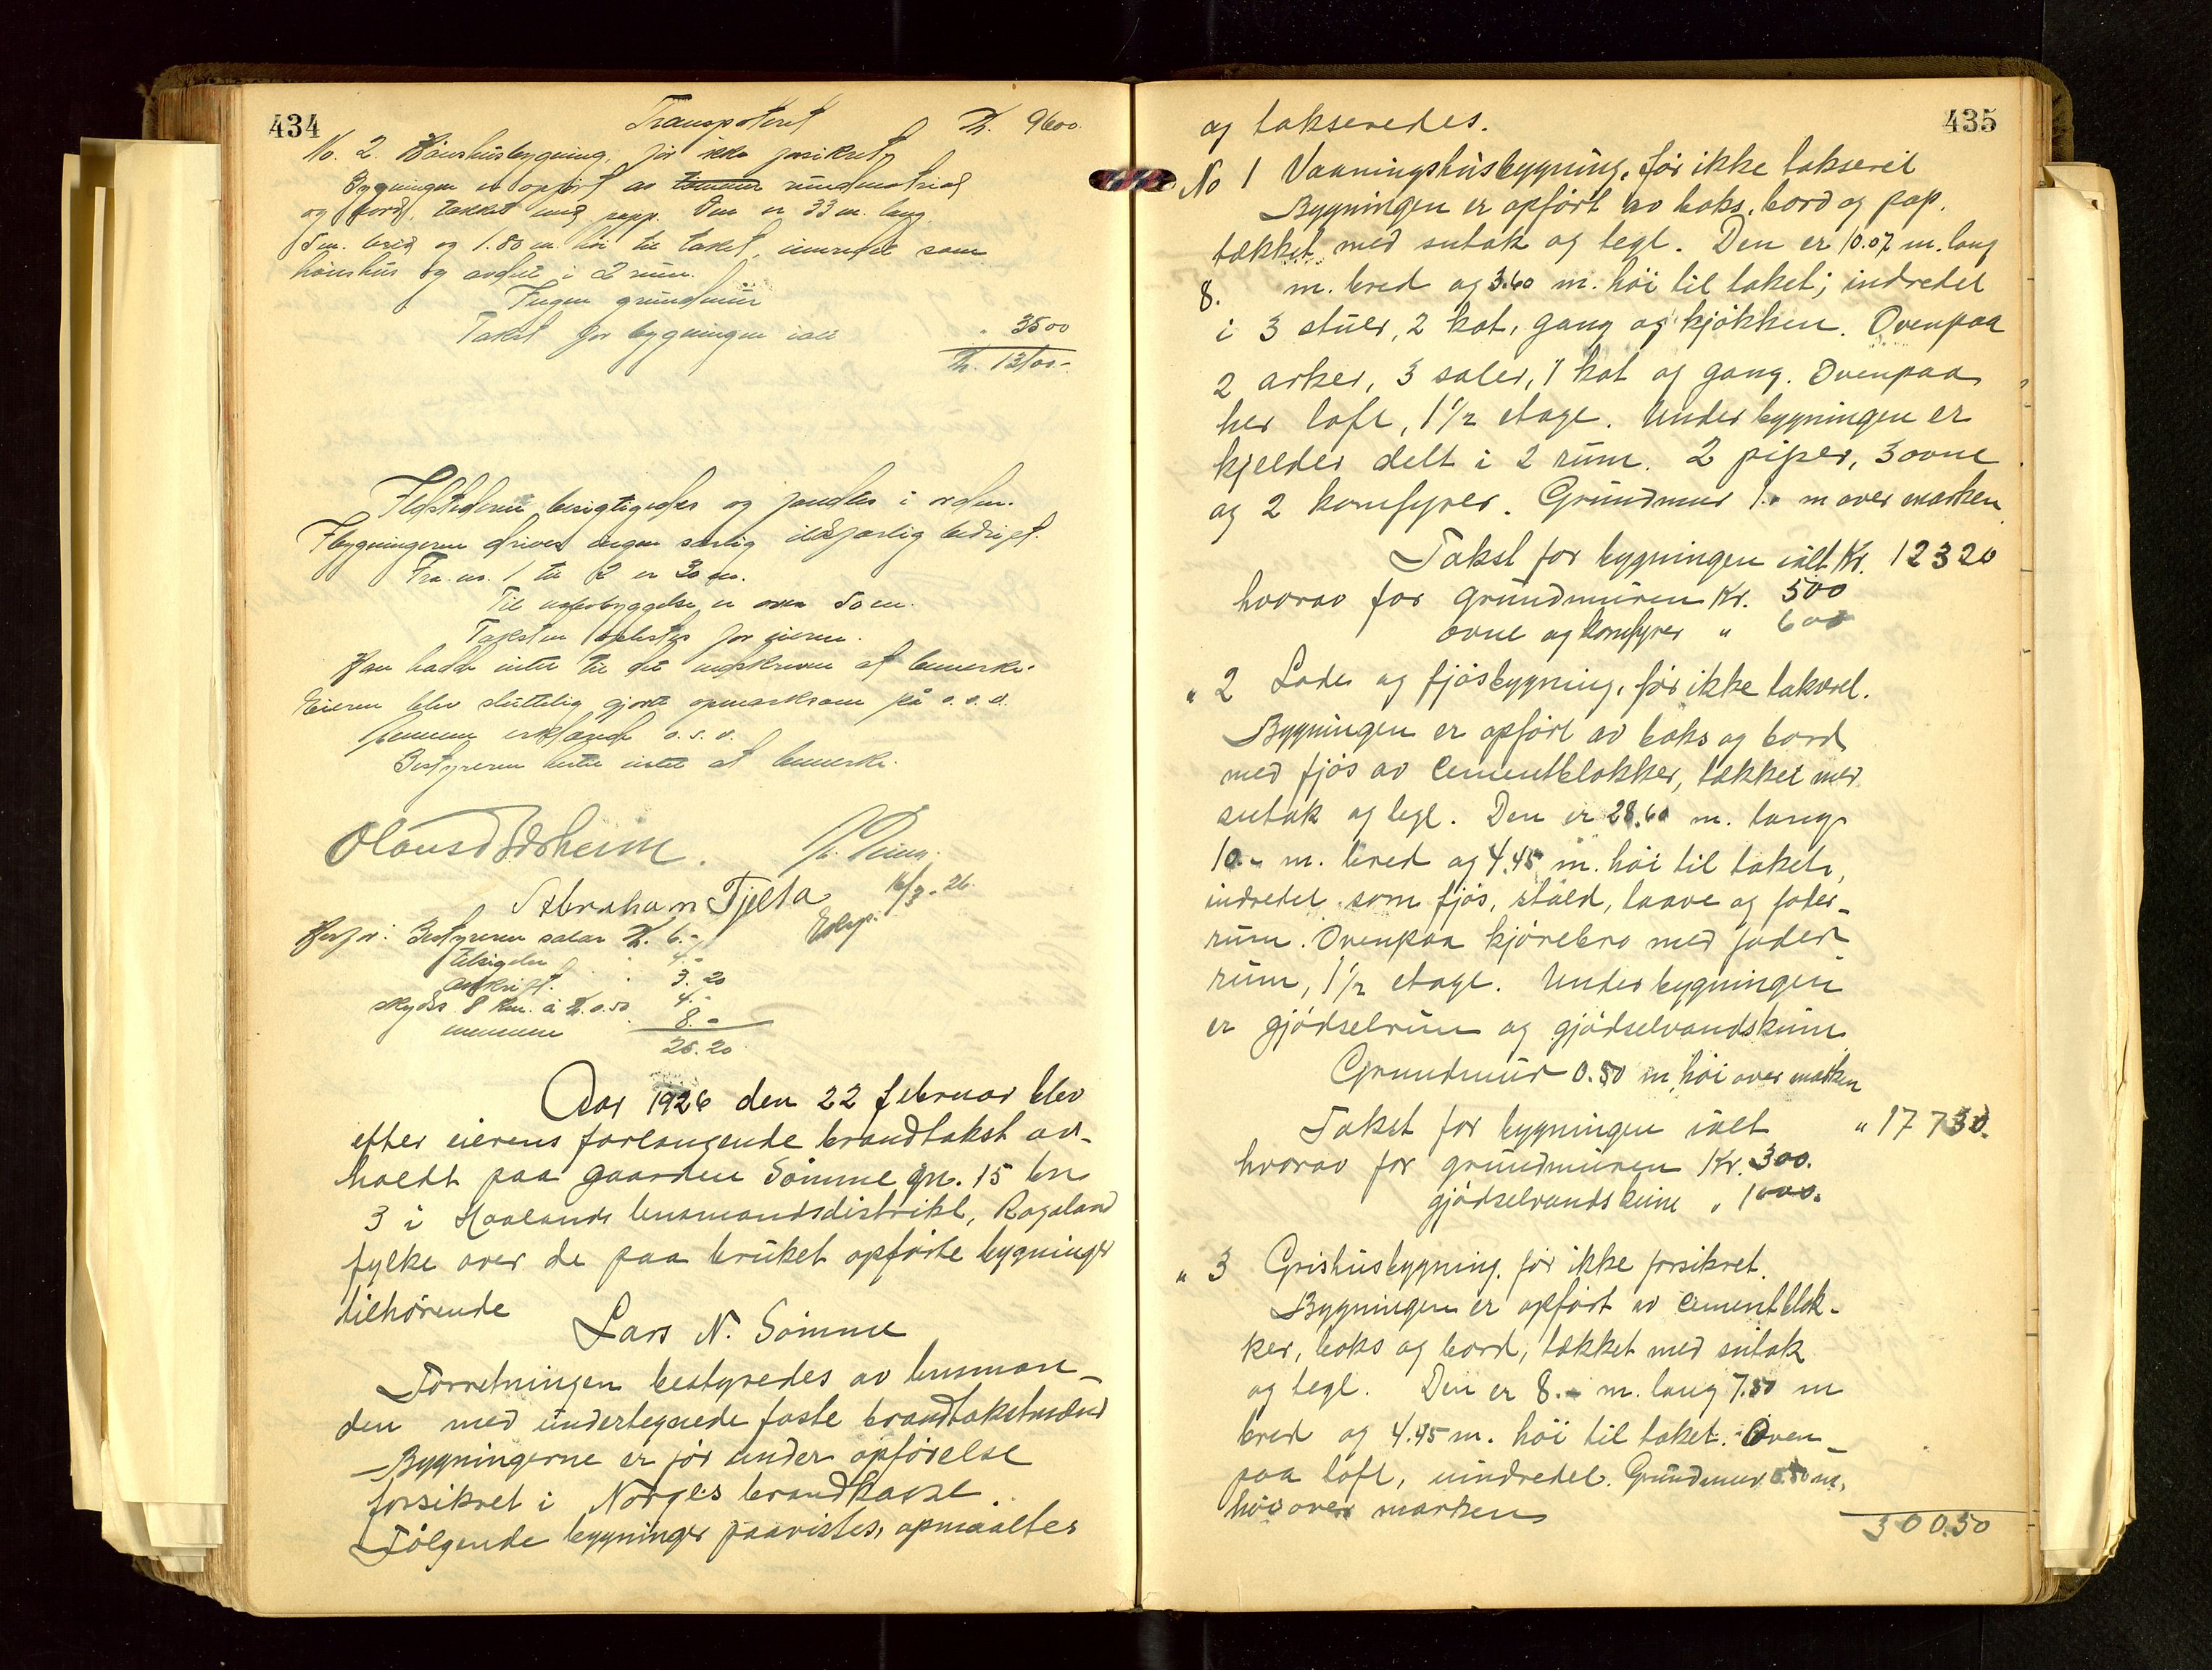 434
Transporteret Kr. 9600.
No. 2. Hönshusbygning, för ikke forsikret,
Bygningen er opfört av tömmer rundmatrial
og bord, tækket med papp. Den er 33 m. lang
5 m. bred og 1.80 m. höi til taket, innredet som
hönshus og avdelt i 2 rum.
Ingen grundmur
Takst for bygningen ialt " 3500
Kr. 13100.-
Ildstederne besigtigedes og fandtes i orden.
I bygningerne drives ingen særlig ildsfarlig bedrift.
Fra no. 1 til 2 er 30 m.
Til nabobyggelse er over 50 m.
Taksten oplæstes for eieren.
Han hadde intet til det nedskrevne at bemerke.
Eieren blev sluttelig gjort opmerksom på o.s.v.
Mennene erklærede o.s.v.
Bestyreren hadde intet at bemerke.
Olaus Ødsheim.
Abraham Tjelta 16/3-26.
Herfor: Bestyreren salær Kr. 6.-
tilsigelse " 4.-
avskrift. " 3.20
skyds 8 km. à Kr. 0.50 4.-
mennene 8.-
25.20
Aar 1926 den 22 februar blev
efter eierens forlangende brandtakst av-
holdt paa gaarden Sömme gn. 15 bn
3 i Haalands lensmandsdistrikt, Rogaland
fylke over de paa bruket opförte bygninger
tilhörende
Lars N. Sömme
Forretningen bestyredes av lensman-
den med undertegnede faste brandtakstmænd
Bygningerne er för under opförelse
forsikret i Norges brandkasse.
Fölgende bygninger paavistes, opmaaltes
435
og takseredes.
No 1 Vaaningshusbygning, för ikke takseret
Bygningen er opfört av boks, bord og pap.
tækket med sutak og tegl. Den er 10.07 m. lang
8. m. bred og 3.60 m. höi til taket; indredet
i 3 stuer, 2 kot, gang og kjökken. Ovenpaa
2 arker, 3 saler, 1 kot og gang. Ovenpaa
her loft, 1 1/2 etage. Under bygningen er
kjelder delt i 2 rum. 2 piper, 3 ovne
og 2 komfyrer. Grundmur 1.- m over marken
Takst for bygningen ialt Kr. 12320
hvorav for grundmuren Kr. 500
ovne og komfyrer " 600
" 2 Lade og fjösbygning, för ikke takseret.
Bygningen er opfört av boks og bord
med fjös av cementblokker, tækket med
sutak og tegl. Den er 28.60 m. lang
10.- m. bred og 4.45 m. höi til taket,
indredet som fjös, stald, laave og foder-
rum. Ovenpaa kjörebro med foder
rum, 1 1/2 etage. Under bygningen
er gjödselrum og gjödselvandskum
Grundmur 0.50 m höi over marken
Takst for bygningen ialt " 17 730.
hvorav for grundmuren Kr. 300.
gjödselvandskum " 1000.
" 3 Grishusbygning. för ikke forsikret.
Bygningen er opfört av cementblok-
ker, boks og bord, tækket med sutak
og tegl. Den er 8.- m. lang 7.50 m
bred og 4.45 m. höi til taket. Oven-
paa loft, uindredet. Grundmur 0.50 m.
höi over marken
30050